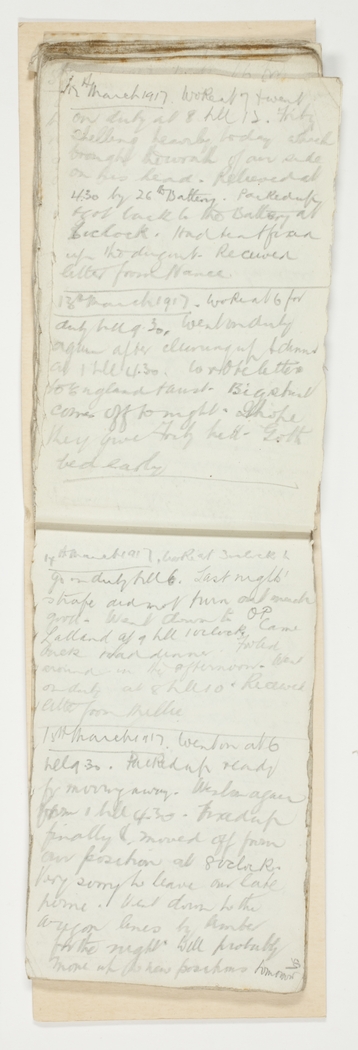 March 1917. Woke at 7 & went
on duty at 8 till 12. Fritz
shelling heavily today which
brought the wrath of our side
on his head. Relieved at
4.30 by 26th Battery. Packed up
& got back to the Battery at
6 oclock. Had tent fixed
up the dugout. Received
letter from Nance
13th March 1917. Woke at 6 for
duty till 9.30. Went on duty
again after cleaning up & dinner
at 1 till 4.30. Wrote letter
to England & Aust. Big stunt
comes off to night. I hope
they give Fritz hell. Go to
bed early
March 1917. Woke at
go on duty till 6. Last night's
strafe did not turn out much
good. Went down to OP
& attend at 9 till 10 oclock. Came
back & had dinner.
around in the afternoon. Went
on duty at 8 till 10. Received
letter from
15th March 1917. Went on at 6
till 9.30. Packed up ready
for moving away. Went on again
from 1 till 4.30. Fixed up
finally & moved off from
our position at 8 oclock.
Very sorry to leave our late
home. Went down to the
wagon lines by limber
for the night. Will probably
move up to new positions tomorrow